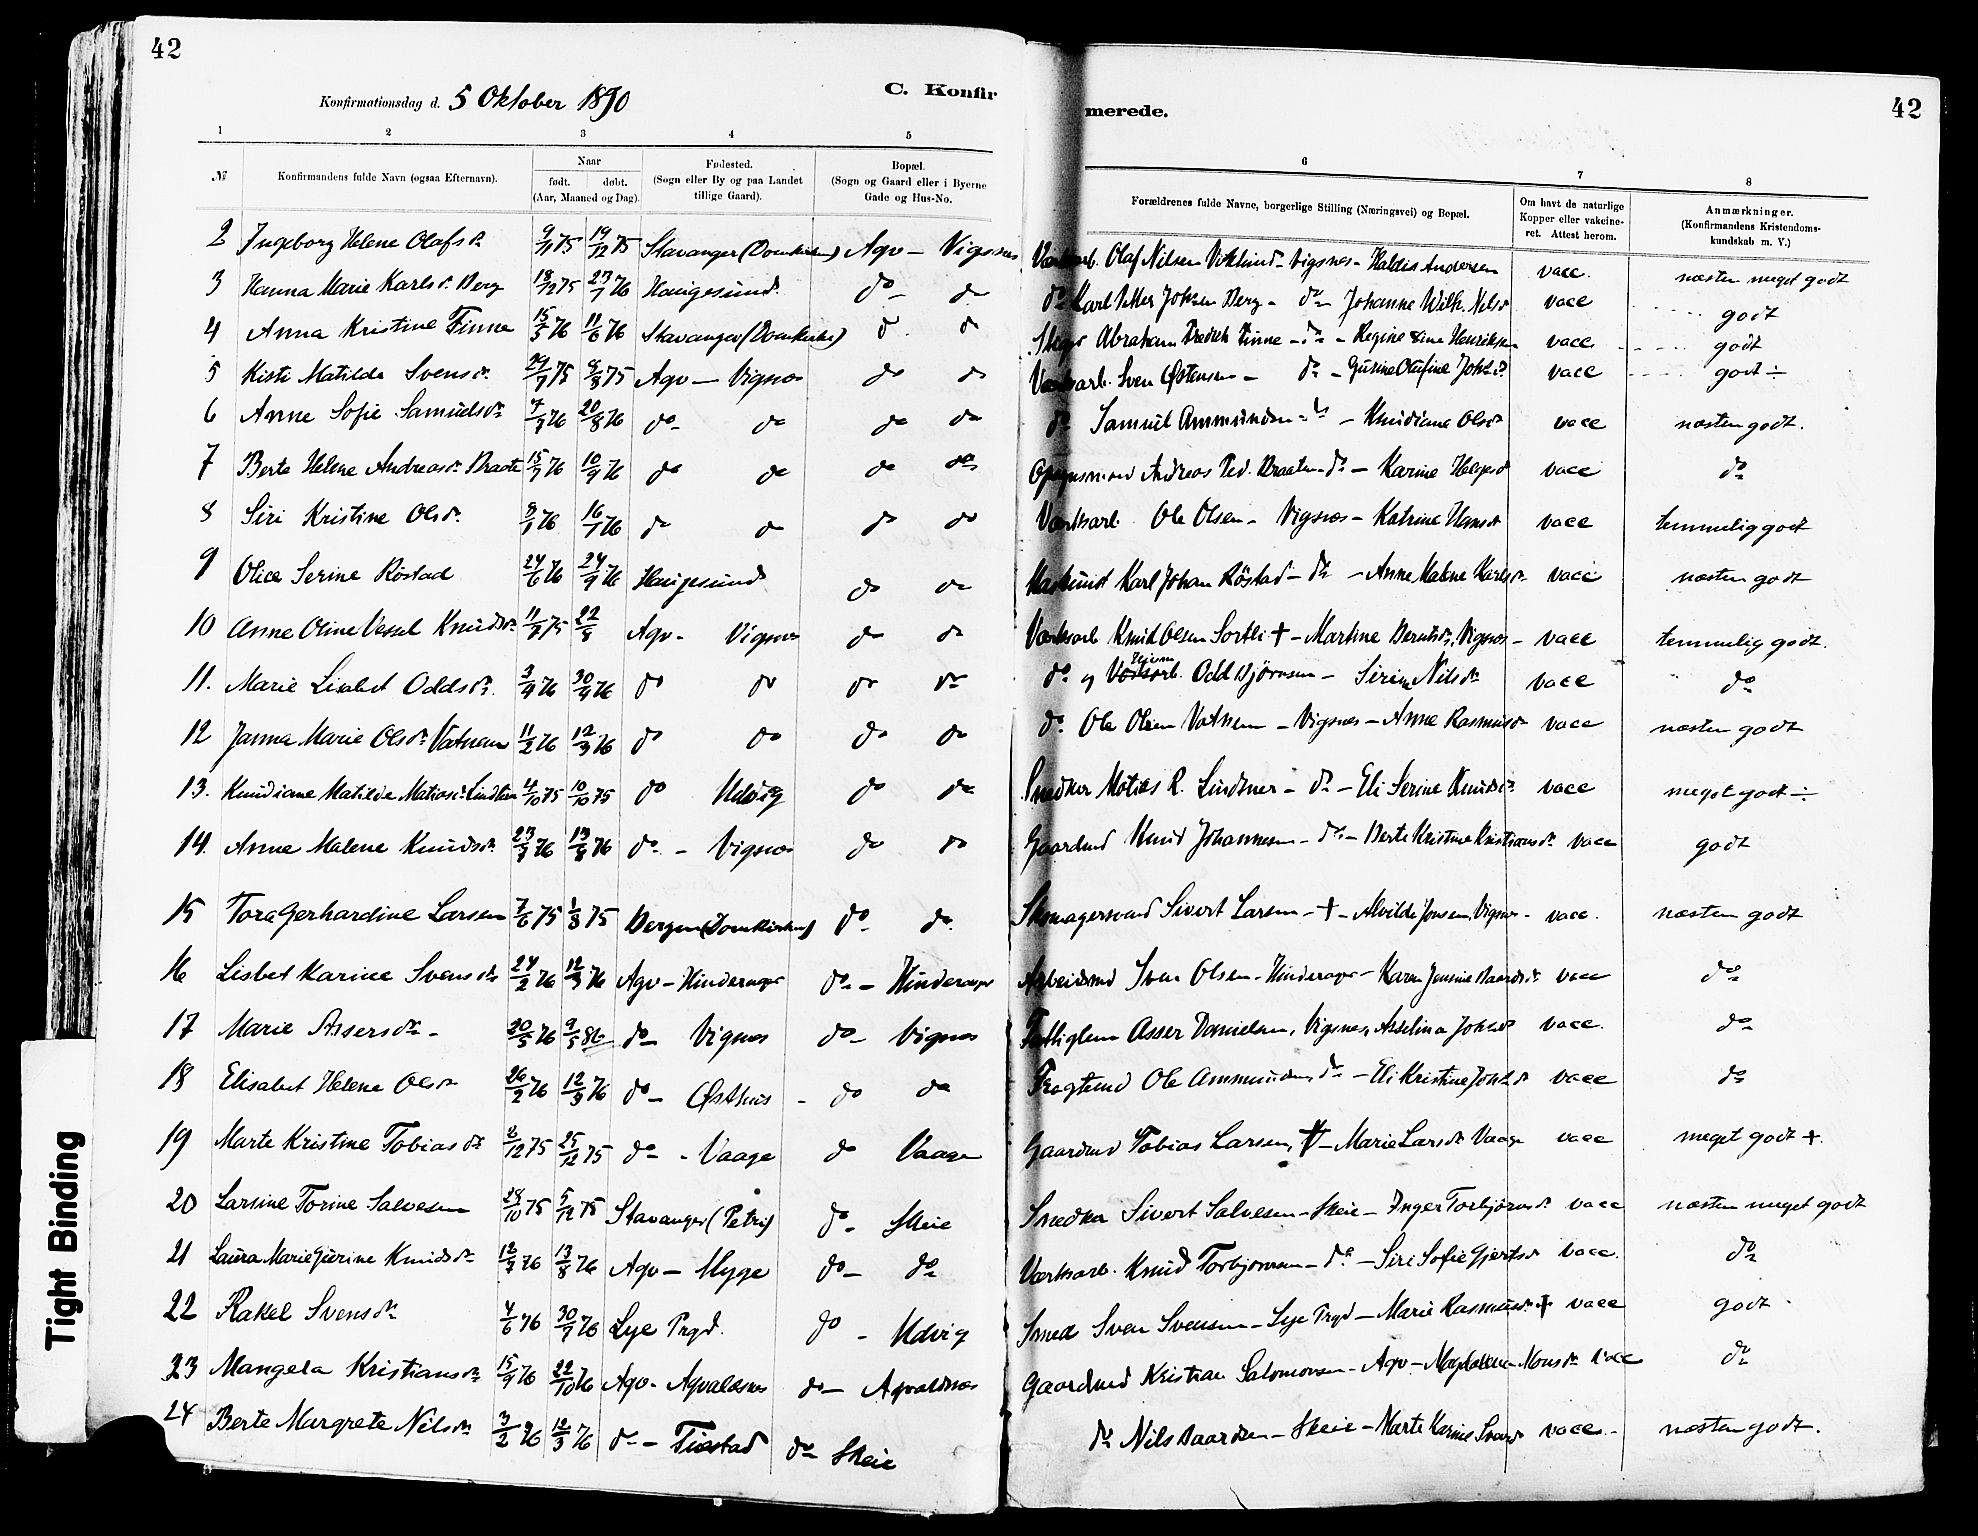 42
Konfirmationsdag d. 5 Oktober 1890
C. Konfir
merede.
42
1 2 3 4 5 6 7 8
№
Konfirmandens fulde Navn (ogsaa Efternavn).
Naar
født. døbt.
(Aar, Maaned og Dag).
Fødested.
(Sogn eller By og paa Landet
tillige Gaard).
Bopæl.
(Sogn og Gaard eller i Byerne
Gade og Hus-No.
Forældrenes fulde Navne, borgerlige Stilling (Næringsvei) og Bopæl.
Om havt de naturlige
Kopper eller vakcine-
ret. Attest herom.
Anmærkninger.
(Konfirmandens Kristendoms-
kundskab m. V.)
2 Ingeborg Helene Olafsdr 9/11 75 19/12 75 Stavanger (Domkirken) Agv - Vigsnes Olaf Nilsen - Vigsnes - Haldis Andersen vacc. næsten meget godt
3 Hanna Marie Karlsdr Berg 18/12 75 23/1 76 Haugesund do - do do Karl Johsen Berg - do - Johanne Wilh. Nilsdr vacc godt
4 Anna Kristine Finne 15/3 76 11/6 76 Stavanger (Domkirke) do do Abraham Finne - do - Regine Henriksen vacc godt
5 Matilde Svensdr 75 8/8 75 Agv - Vignes do do Sven Østensen - do - Gurine Olufine Johsdr vacc godt ÷
6 Anne Sofie Samuelsdr 7/7 76 20/8 76 do - do do do do Samuel Ammundsen - do - Knudiane Olsdr vacc næsten godt.
7 Berte Helene Andreasdr Braate 15/7 76 10/9 76 do do do do Andreas Ped. Braaten - do - Karine Helgesdr vacc do
8 Siri Kristine Olsdr 8/1 76 16/1 76 do do do do Værksarb. Ole Olsen - Vigsnes - Katrine Hansdr vacc temmelig godt
9 Olice Serine Röstad 24/6 76 24/9 76 Haugesund do do Karl Johan Röstad - do - Anne Malene Karlsdr vacc næsten godt
10 Anne Oline Vessel Knudsdr 11/7 75 22/8 Agv - Vignes do do Værksarb Knud Olsen Sortli † - Martine Berntsdr, Vigsnes - vacc temmelig godt.
11. Marie Lisabet Oddsdr. 3/9 76 30/9 76 do do do do do og Odd Bjørnsen - Sirine Nilsdr vacc do
12 Janna Marie Olsdr Vatnem 11/2 76 12/3 76 do do do do do Ole Olsen Vatnem - Vigsnes - Anne Rasmusdr vacc næsten godt
13. Knudiane Matilde Matiasdr Lindtner 4/10 75 10/10 75 do Udvig do do Snedker Matias R. Lindtner - do - Eli Serine Knudsdr vacc meget godt ÷
14. Anne Malene Knudsdr 23/7 76 13/8 76 do - Vignes do do Gaardmd Knud Johannesen - do - Berte Kristine Kristiansdr vacc godt
15 Tora Gerhardine Larsen 7/6 75 1/8 75 Bergen (Domkirken) do do. Skomagersvend Sivert Larsen - † - Alvilde Jonsen, Vigsnes - vacc. næsten godt
16 Lisbet Karine Svensdr 24/2 76 12/3 76 Agv - Hinderager do - Hinderager Arbeidsmd Sven Olsen - Hinderager - Karen Jensine Baardsdr vacc do
17 Marie Assersdr - 30/3 76 9/5 86 do - Vignes do - Vignes Fattiglem Asser Danielsen, Vigsnes, Asselina Johsdr vacc. do
18 Elisabet Helene Olsdr 26/2 76 12/3 76 do - Østhus - do do Ole Ammundsen, do - Eli Kristine Johsdr vacc do
19 Marte Kristine Tobiasdr 2/12 75 25/12 75 do - Vaage do Vaage Gaardmd Tobias Larsen, † - Marie Larsdr Vaage vacc meget godt +.
20 Larsine Torine Salvesen 28/10 75 5/12 75 Stavanger (Petri) do - Skeie Snedker Sivert Salvesen - Skeie - Inger Torbjørnsdr vacc næsten meget godt
21 Laura Marie Gurine Knudsdr 12/7 76 13/8 76 Agv - Myge do - do Værksarb. Knud Torbjørnsen - do - Siri Sofie Gjertsdr vacc. do
22 Rakel Svensdr 4/6 76 30/7 76 Lye Prgd. do - Udvig Smed Sven Svensen - Lye Prgd - Marie Rasmusdr † vacc godt
23 Mangela Kristiansdr 15/9 76 22/10 76 Agv - Agvaldsnes do - Agvaldnes Gaardmd Kristian Salomonsen - Agv - Magdalene Monsdr vacc do
24 Berte Margrete Nilsdr 3/2 76 12/3 76 do - Tiøstad do Skeie do Nils Baardsen - Skeie - Marte Karine vacc. næsten godt.
Tight Binding